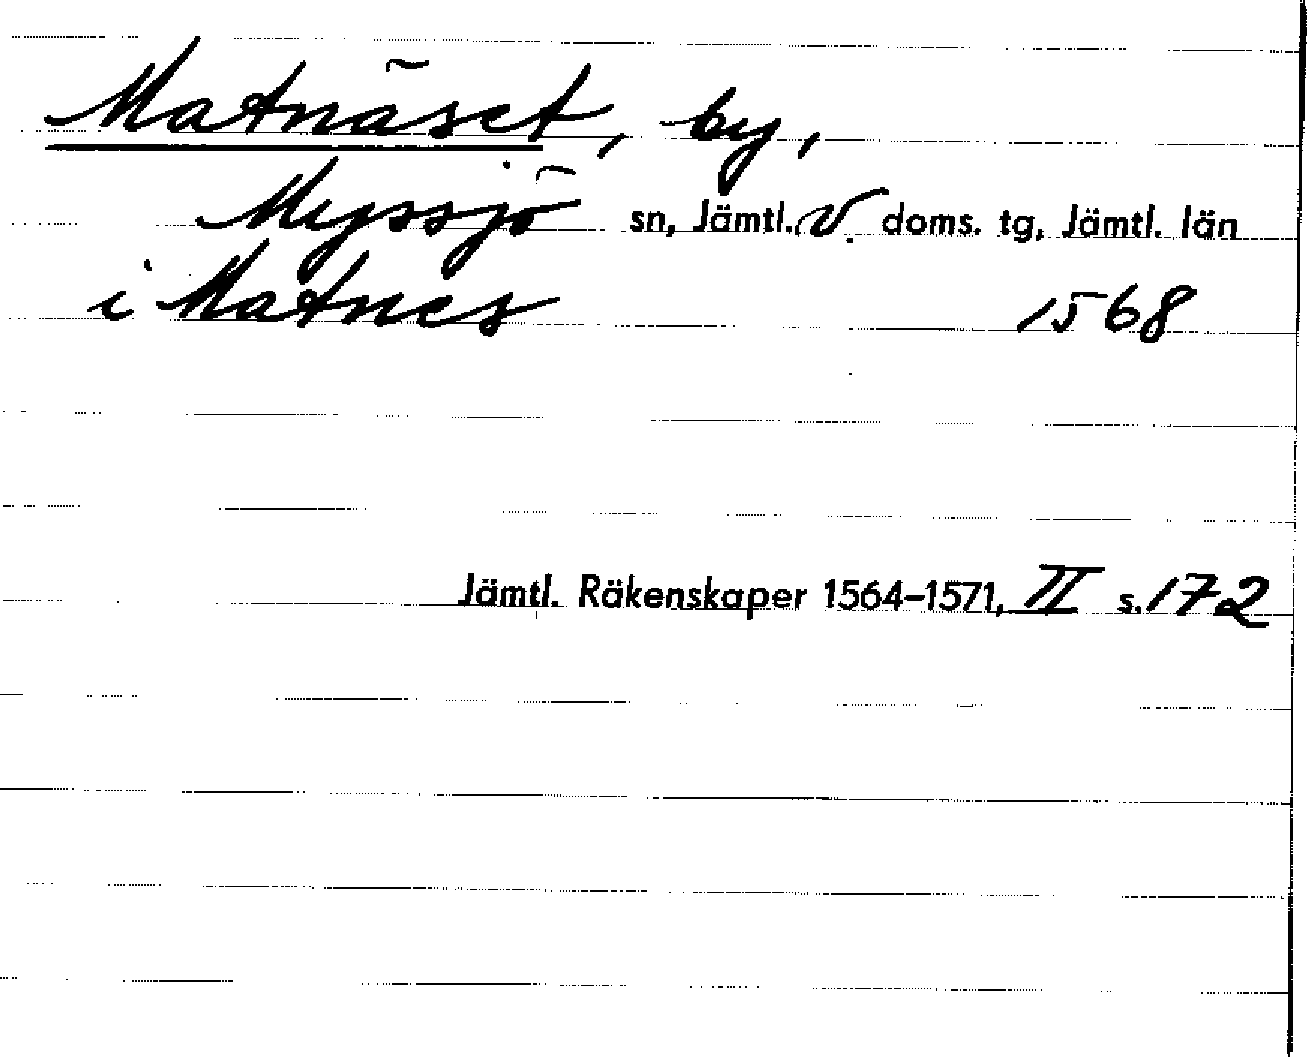 Matnäset, by,
Myssjö sn, Jämtl. V. doms. tg, Jämtl. län
i Matnes 1568
Jämtl. Räkenskaper 1564–1571, II s. 172